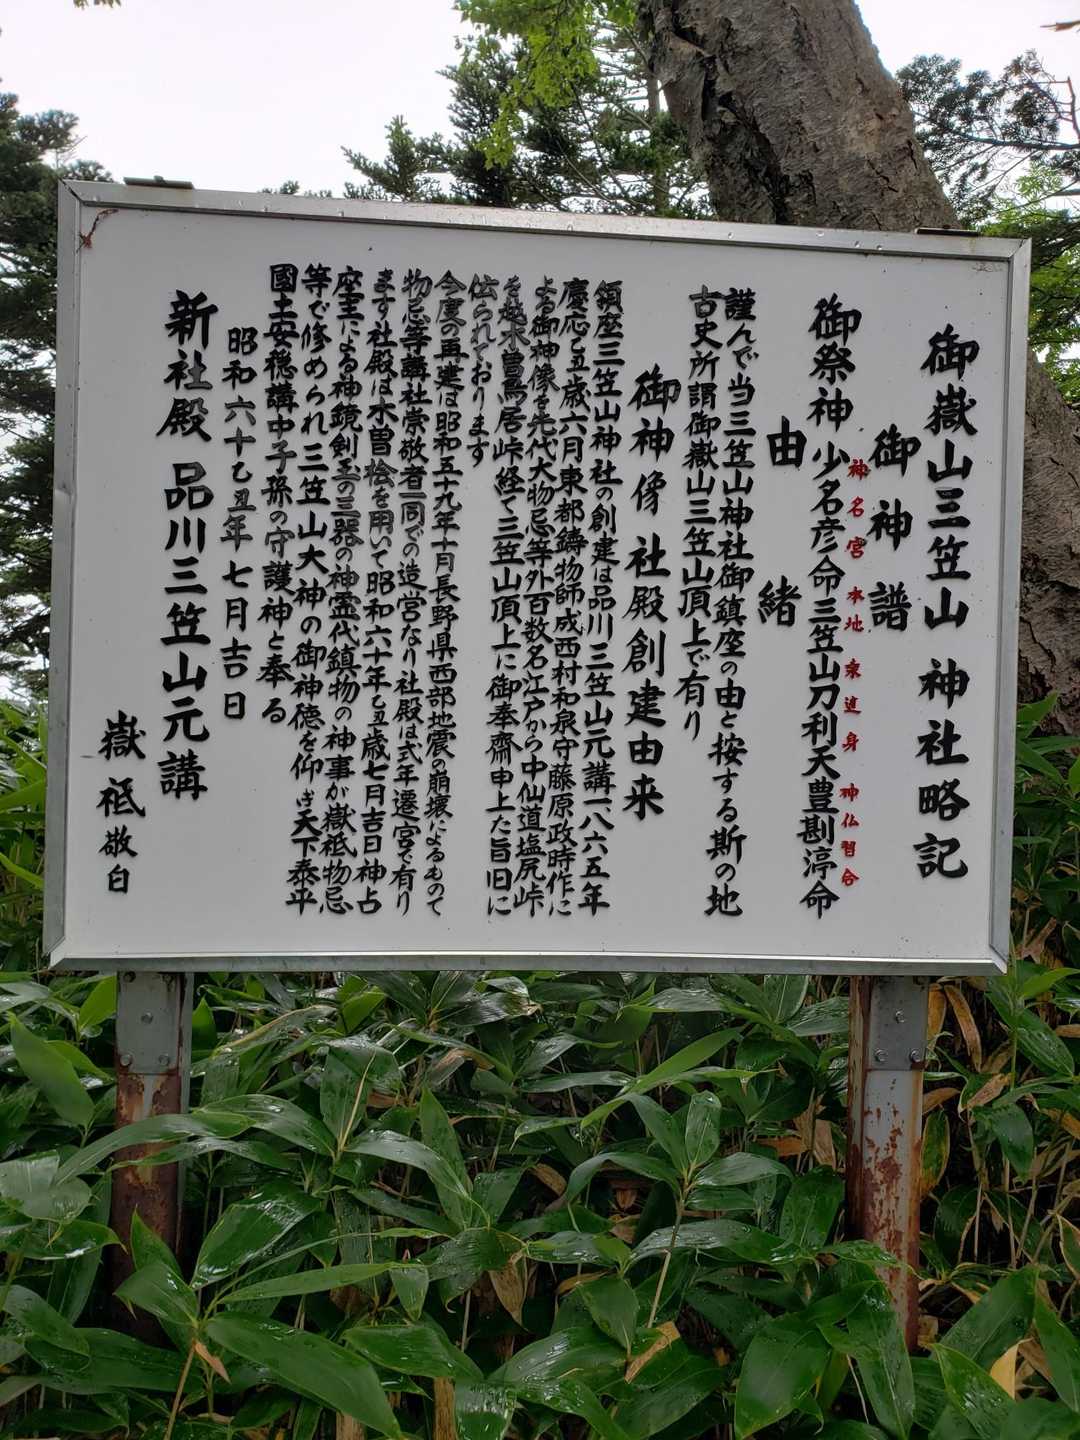 御嶽山三笠山 神社略記
御神譜
神名宮 本地 衆道身 神仏習合
御祭神 少名彦命三笠山刀利天豊斟渟命
由緒
謹んで当三笠山神社御鎮座の由と按する斯の地
古史所謂御嶽山三笠山頂上で有り
御神像 社殿創建由来
領座三笠山神社の創建は品川三笠山元講一八六五年
慶応乙丑歳六月東都鋳物師成西村和泉守藤原政時作に
よる御神像を先代大物忌等外百数名江戸から中仙道塩尻峠
を越木曽鳥居峠経て三笠山頂上に御奉齋申上た旨旧に
伝られております
今度の再建は昭和五十九年十月長野県西部地震の崩壊によるもので
物忌等講社崇敬者一同での造営なり社殿は式年遷宮で有り
ます社殿は木曽桧を用いて昭和六十年乙丑歳七月吉日神占
座主による神鏡剣玉の三器の神霊代鎮物の神事が嶽祗物忌
等で修められ三笠山大神の御神徳を仰ぎ天下泰平
國土安穏講中子孫の守護神と奉る
昭和六十乙丑年七月吉日
新社殿 品川三笠山元講
嶽祗敬白